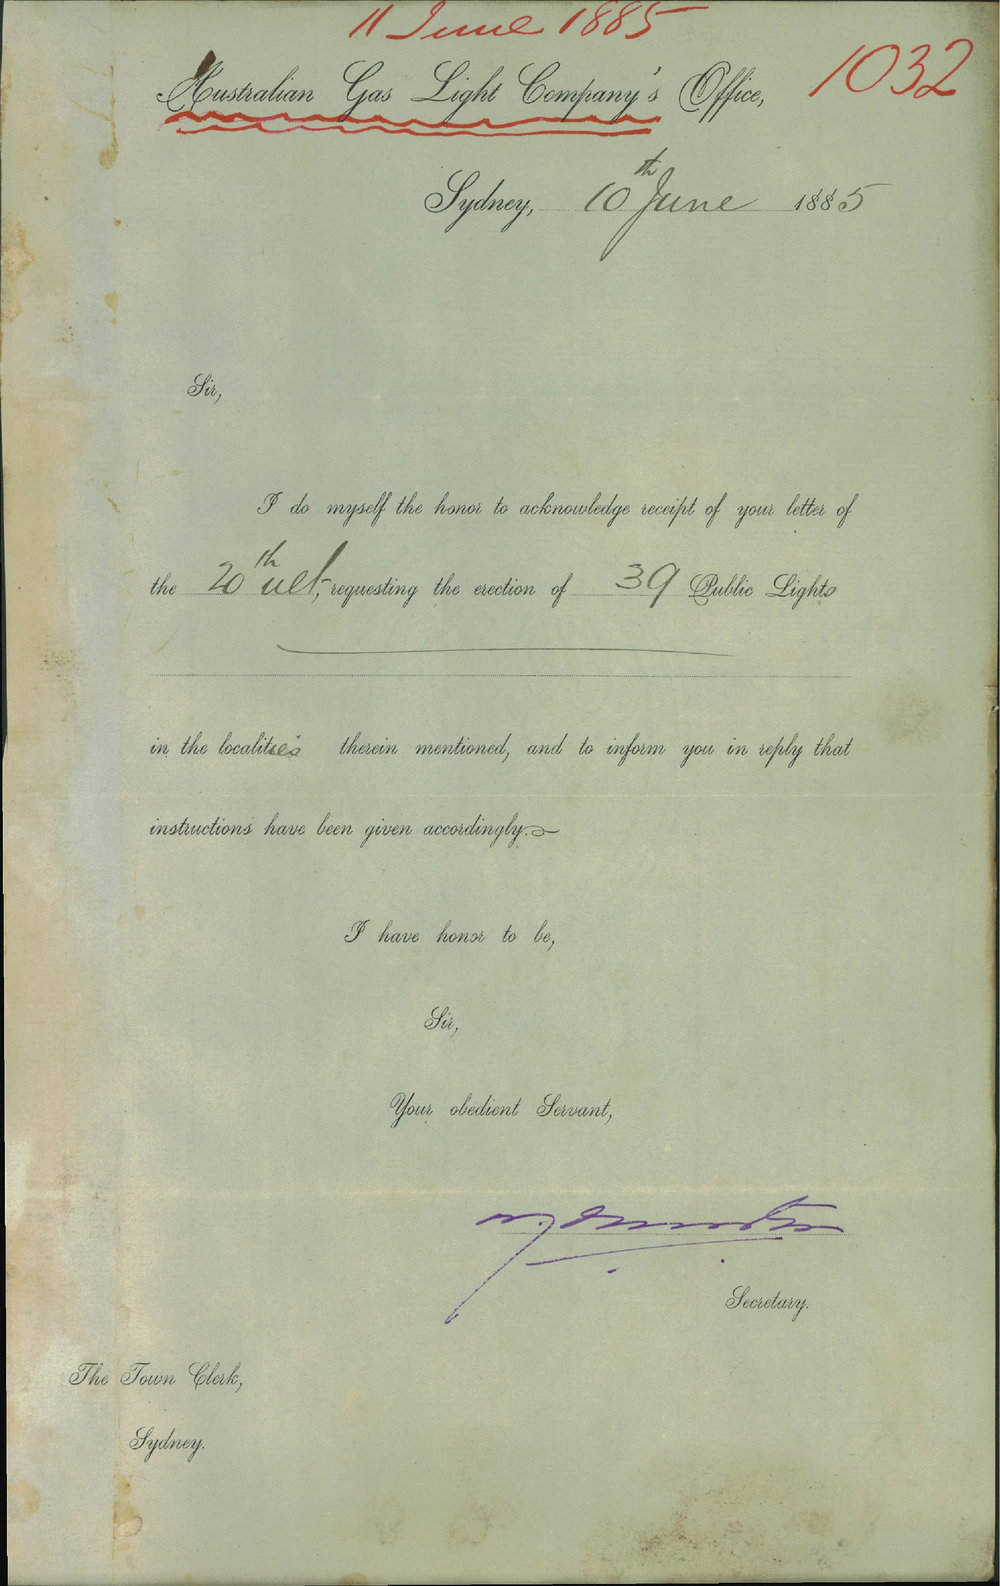 11 June 1885
1032
Australian Gas Light Company's Office,
Sydney, 10th June 1885
Sir,
I do myself the honor to acknowledge receipt of your letter of
the 20th ult, requesting the erection of 39 Public Lights
in the localities therein mentioned, and to inform you in reply that
instructions have been given accordingly.
I have honor to be,
Sir,
Your obedient Servant,
Secretary.
The Town Clerk,
Sydney.